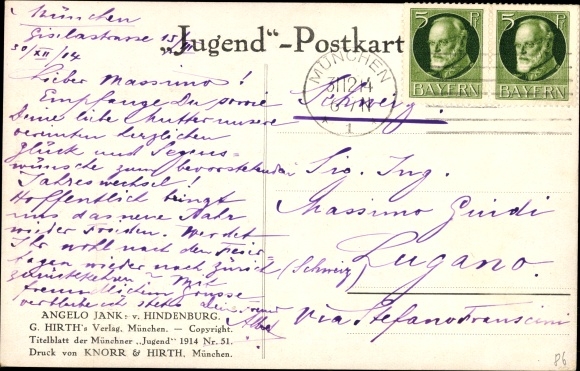 München
Giselastrasse 15/
30/XII/14
„Jugend“-Postkart
5 Pf
BAYERN
5 Pf
BAYERN
MÜNCHEN
31 12 14
1
Lieber Massimo!
Empfange Du sowie
Deine liebe Mutter unsere
vereinten herzlichen
Glück und Segens-
wünsche zum bevorstehenden
Jahreswechsel!
Hoffentlich bringt
uns das neue Jahr
wieder Frieden. Werdet
Ihr wohl nach den Feier-
tagen wieder nach Zürich
zurückkehren – Mit
freundlichem Grusse
verbleibe ich stets Dein
Schweiz.
Sig. Ing.
Massimo Guidi
(Schweiz) Lugano.
Via Stefano Franscini
ANGELO JANK: v. HINDENBURG.
G. HIRTH's Verlag, München. — Copyright.
Titelblatt der Münchner „Jugend“ 1914 Nr. 51.
Druck von KNORR & HIRTH, München.
86